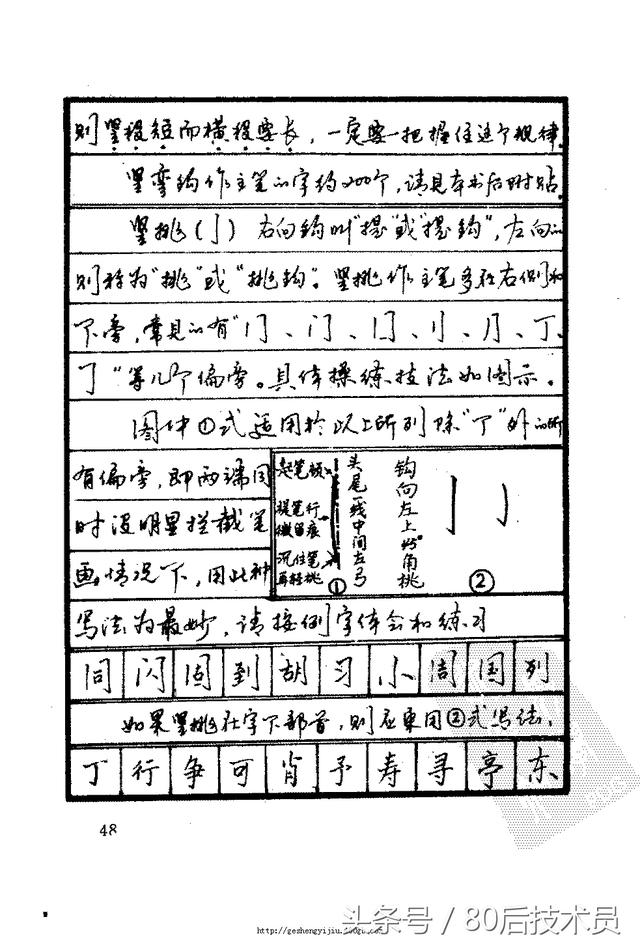 则竖段短而横段要长，一定要一把握住这个规律.
竖弯钩作主笔的字约200个，请见本书后附贴.
竖挑(亅) 右向钩叫"提"或"提钩"，左向的
则称为"挑"或"挑钩"。竖挑作主笔多在右侧和
下旁，常见的有"门、冂、刂、月、丁、
了"等几个偏旁。具体操练技法如图示。
图中①式适用于以上所列除"丁"外的所
有偏旁，即两端同
时没明显拦截笔
画情况下，因此种
起笔顿
提笔行
微留痕
沉住笔
再轻挑
头尾一线中间左弓
①
钩向左上45°角挑
②
写法为最妙，请按例字体会和练习
同 闪 固 到 胡 习 小 周 国 列
如果竖挑在字下部首，则应采用②式写法.
丁 行 争 可 肖 予 寿 寻 亭 东
48
头条号 / 80后技术员